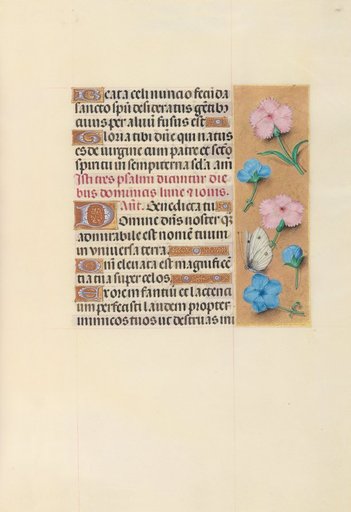 Beata celi nuncio fecunda
sancto spu desideratus gentibꝰ
cuius per aluū fusus est
Gloria tibi dn̄e qui natus
es de virgine cum patre et scto
spiritu in sempiterna scla am̄
Isti tres psalmi dicuntur die
bus dominicis lune & iouis.
Añt. Benedicta tu
Domine dn̄s noster qͣ
admirabile est nomē tuum
in vniuersa terra.
Qm̄ eleuata est magnificē
tia tua super celos
Ex ore infantiū et lactenti
um perfecisti laudem propter
inimicos tuos ut destruas ini